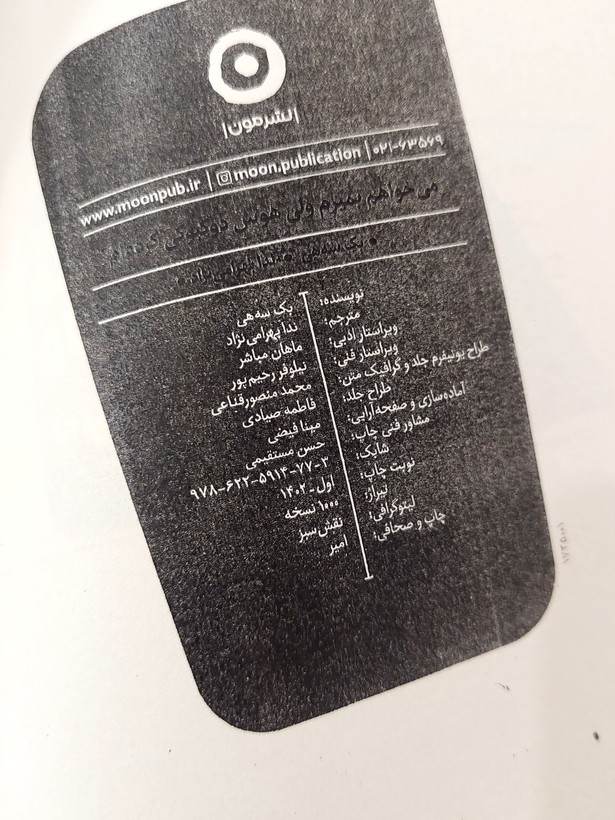 |نشرمون|
www.moonpub.ir | moon.publication | ۰۲۱-۶۳۵۶۹
می‌خواهم بمیرم ولی هوس دوکبوکی کرده‌ام
• بک سه‌هی • ندا بهرامی‌نژاد •
نویسنده: بک سه‌هی
مترجم: ندا بهرامی‌نژاد
ویراستار ادبی: ماهان مباشر
ویراستار فنی: نیلوفر رحیم‌پور
طراح یونیفرم جلد و گرافیک متن: محمد منصور قناعی
طراح جلد: فاطمه صیادی
آماده‌سازی و صفحه‌آرایی: مینا فیضی
مشاور فنی چاپ: حسن مستقیمی
شابک: ۹۷۸-۶۲۲-۵۹۱۴-۷۷-۳
نوبت چاپ: اول - ۱۴۰۲
تیراژ: ۱۰۰۰ نسخه
لیتوگرافی: نقش سبز
چاپ و صحافی: امیر